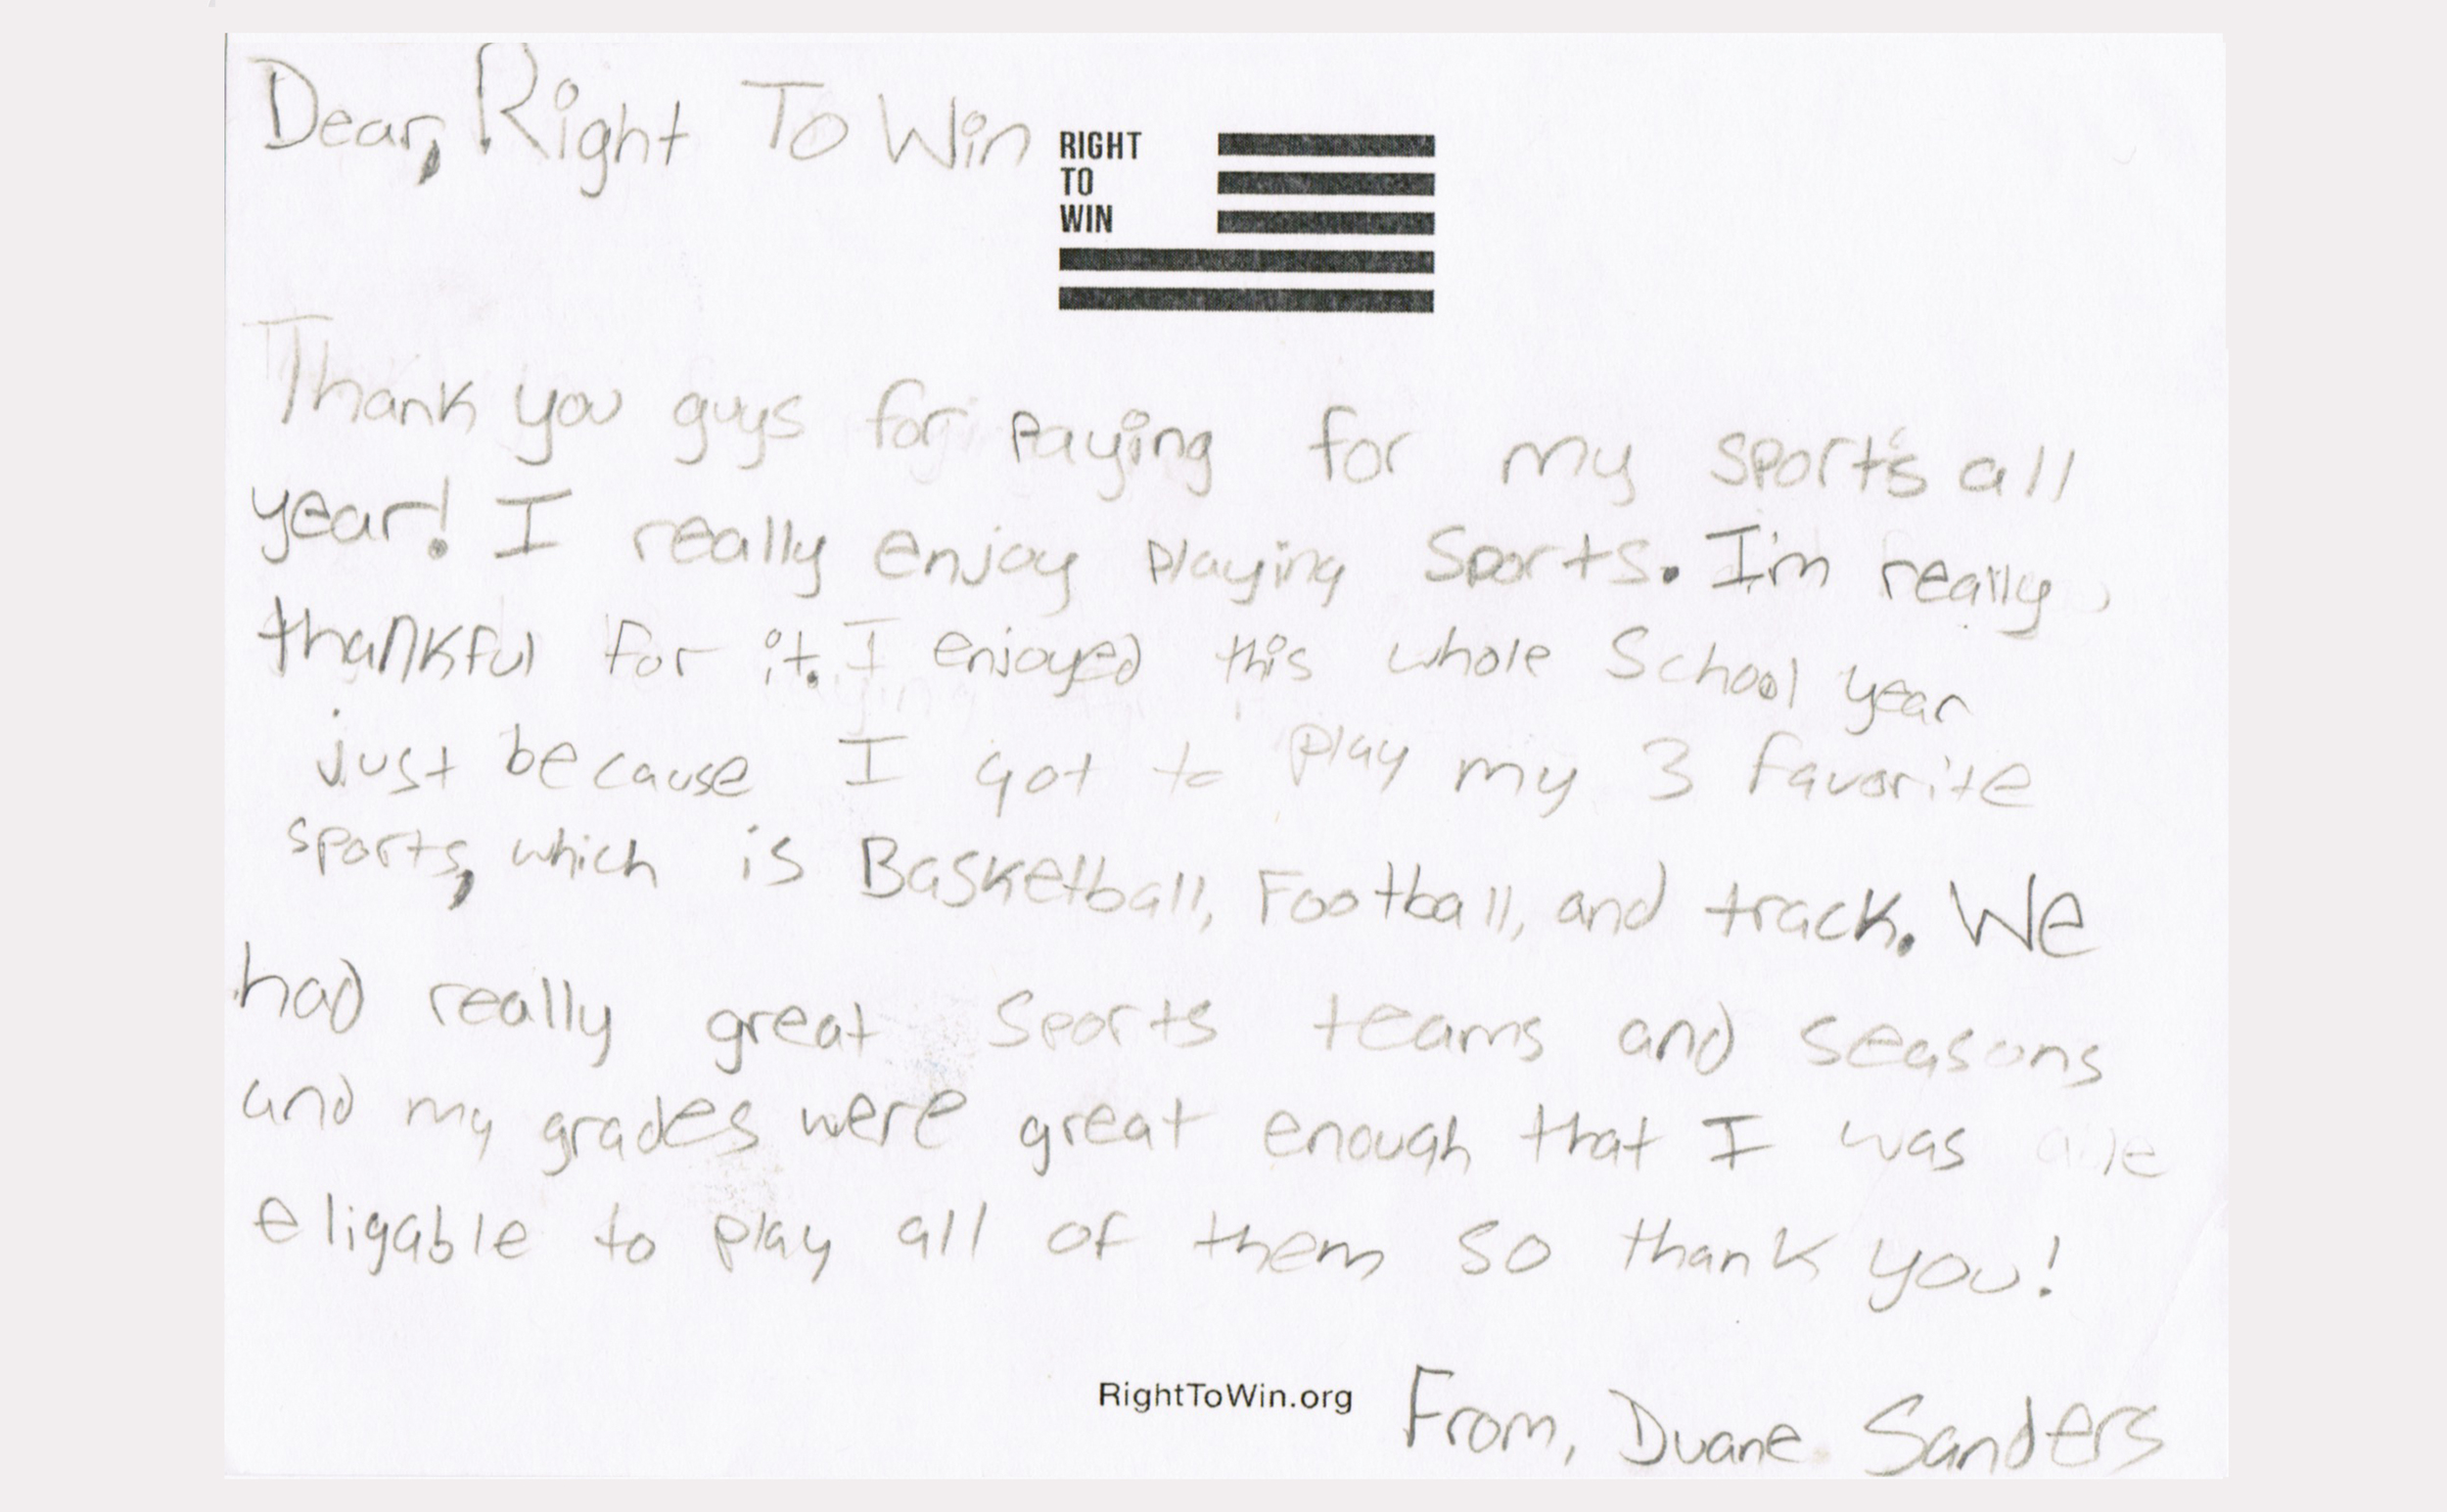 Dear, Right To Win
RIGHT
TO
WIN
Thank you guys for paying for my sport's all
year! I really enjoy playing Sports. I'm really
thankful for it. I enjoyed this whole School year
just because I got to play my 3 favorite
sports, which is Basketball, Football, and track. We
had really great Sports teams and seasons
and my grades were great enough that I was
eligable to play all of them so thank you!
RightToWin.org
From, Duane Sanders